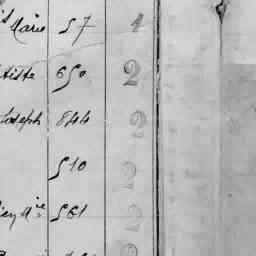 Marie 57 1
tiste 650 2
Joseph 844 2
510 2
561 2
2